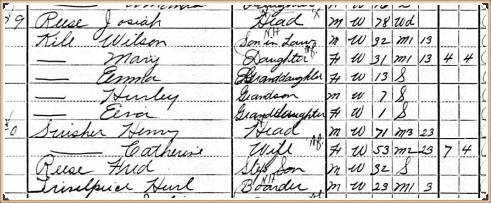 Reese Josiah Head M W 78 Wd
Kill Wilson Son in Law M W 32 M1 13
— Mary Daughter F W 31 M1 13 4 4
— Emma Granddaughter F W 13 S
— Hurley Grandson M W 7 S
— Granddaughter F W 1 S
Swisher Henry Head M W 71 M3 23
— Catherine Wife F W 53 M2 23 7 4
Reese Fred Step Son M W 32 S
Hurl Boarder M W 23 M1 3